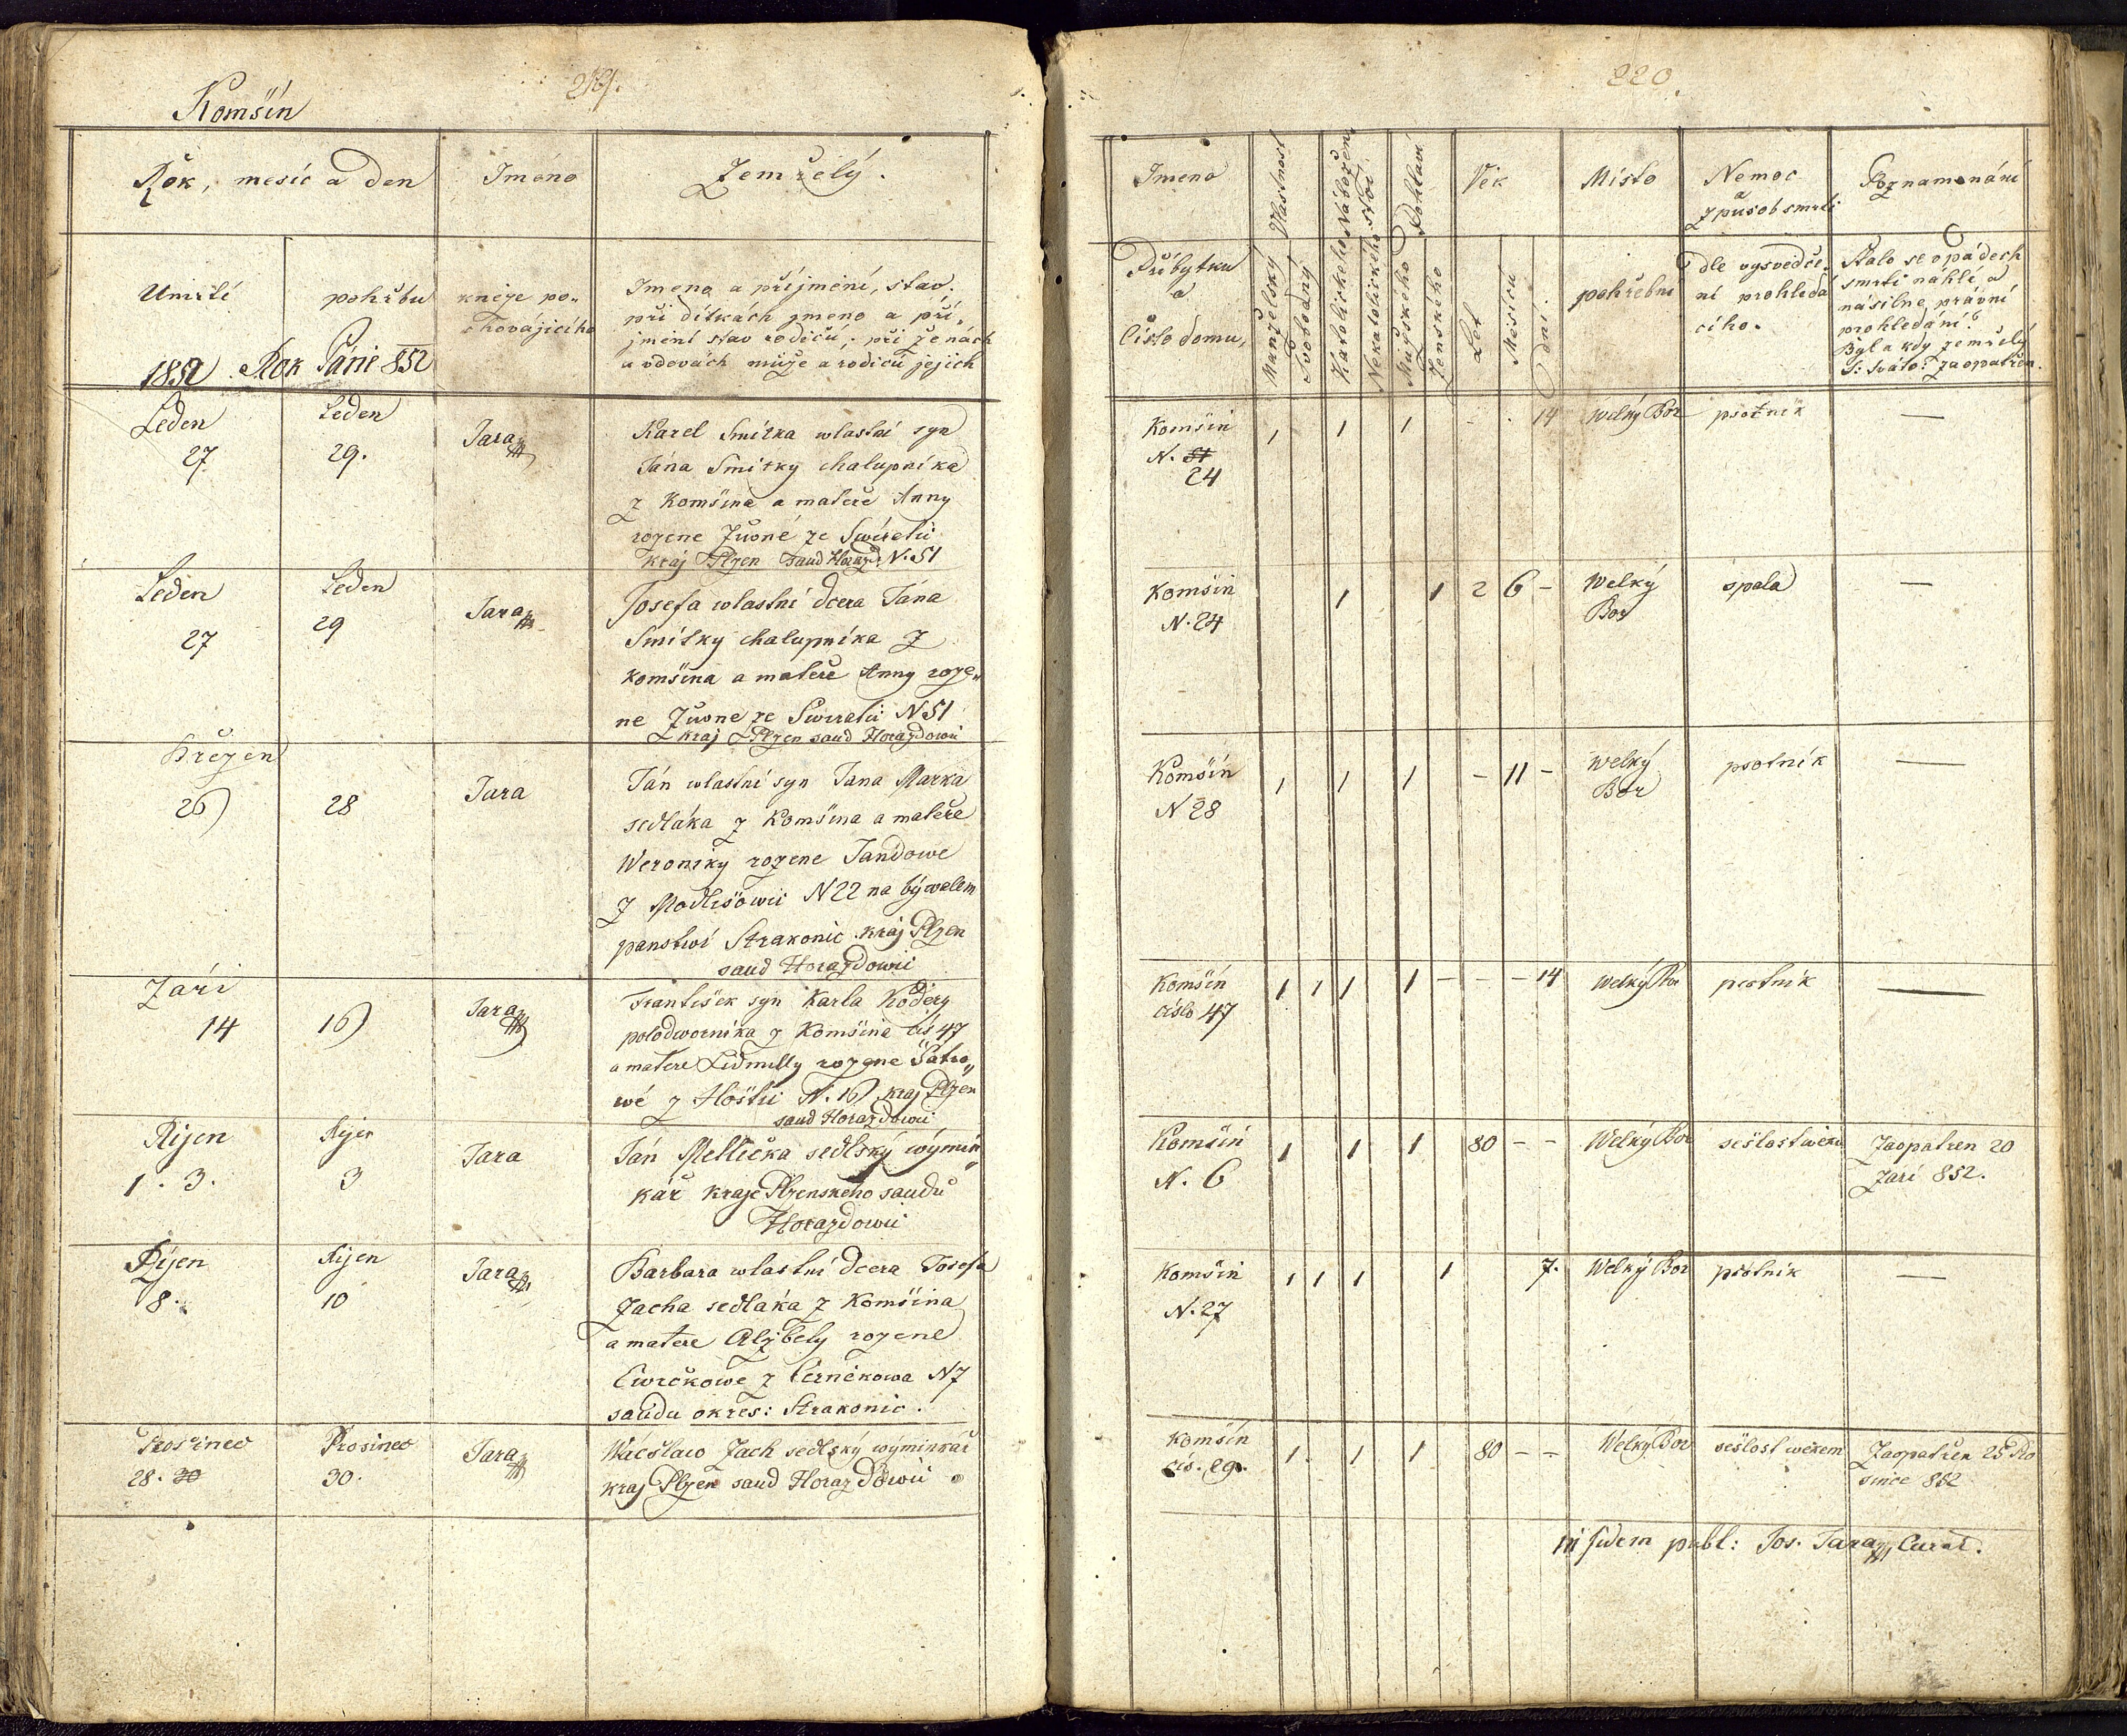 Komšín
219.
Rok, mesíc a den
Jméno
Zemřelý.
Umrtí
pohřbu
kněze po-
chovájícího
Jmeno a příjmení, stav.
při dítkách jmeno a pří-
jmení stav rodičů; při ženách
a vdovách muže a rodičů jejich
1852 Rok Páně 852
Leden
27
Leden
29.
Jara
Karel Smitka wlastní syn
Jána Smitky chalupníka
z Komšina a mateře Anny
rozene
kraj Plzen saud Horažd: N. 51
Leden
27
Leden
29
Jara
Josefa wlastní dcera Jána
Smitky chalupníka z
Komšina a mateře Anny roze„
ne N 51
kraj Plzen saud Horazdowii
Březen
26
28
Jara
Ján wlastní syn Jana Marka
sedláka z Komšina a mateře
Weroniky rozene Jandowe
z Modlišowii N 22 na býwalem
panstwí Strakonic kraj Plzen
saud Horazdowii
Září
14
16
Jara
František syn Karla Kodery
polodwornika z Komšina čís 47
a matere Lidmilly rozene
wé z Hoštii N. 16 kraj Plzen
saud Horazdowii
Rijen
1. 3.
Rijen
3
Jara
Ján Mellička sedlský wýmin„
kář kraje Plzenského saudu
Horazdowii
Říjen
8.
Rijen
10
Jara
Barbara wlastní dcera Josefa
Zacha sedláka z Komšina
a matere Alzbety rozene
Cwrčkowe z Černikowa N 7
saudu okres: Strakonic.
Prosinec
28. 30
Prosinec
30.
Jara
Wácslaw Zach sedlsky wýminkář
kraj Plzen saud Horazdowii
220.
Jmeno
Vlastnost
Nábožen
stvi
Pohlaví
Věk
Místo
Nemoc
a
způsob smrti
Poznamenání
Přibytku
a
Číslo domu,
Manželský
Svobodný
Katolického
Nekatolického
Mužského
Ženského
Let
Měsíců
dní
pohřební
dle vysvedče-
ní prohledá
cího.
Stalo se o pádech
smrti náhlé a
násilne právní
prohledání?
Byl a kdy zemřelý
S: Svato: zaopatřen.
Komšin
N. 51
24
1 1 1 - . 14 welký Bor psotnik —
Komšin
N. 24
1 1 2 6 - Welký
Bor
spala —
Komšín
N 28
1 1 1 - 11 - welký
Bor
psotník —
Komšín
čislo 47
1 1 1 1 - - - 14 Welký Bor psotnik —
Komšin
N. 6
1 1 1 80 - - Welký Bor sešlost weku Zaopatren 20
Zári 852.
Komšin
N. 27
1 1 1 1 7. Welký Bor psotnik —
Komšín
čís. 29.
1 1 1 80 - - Welký Bor sešlost wekem Zaopatřen 25 Pro
since 852
in fidem publ: Jos. Jara Curat.